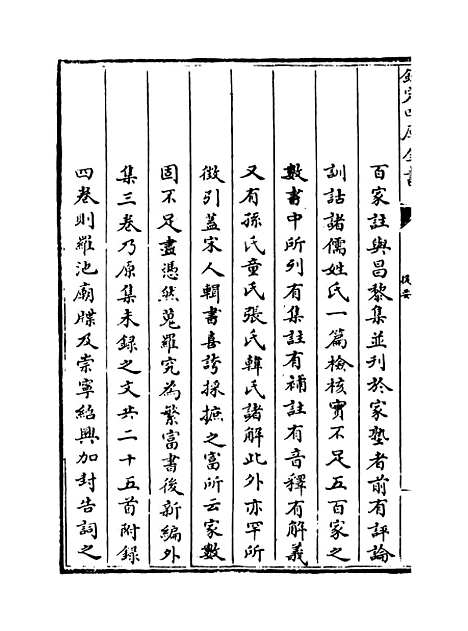 欽定四庫全書
提要
百家註與昌黎集並刊於家塾者前有評論
訓詁諸儒姓氏一篇檢核實不足五百家之
數書中所列有集註有補註有音釋有解義
又有孫氏童氏張氏韓氏諸解此外亦罕所
徴引蓋宋人輯書喜誇採摭之富所云家數
固不足盡憑然蒐羅究為繁富書後新編外
集三卷乃原集未錄之文共二十五首附錄
四卷則羅池廟牒及崇寧紹興加封告詞之